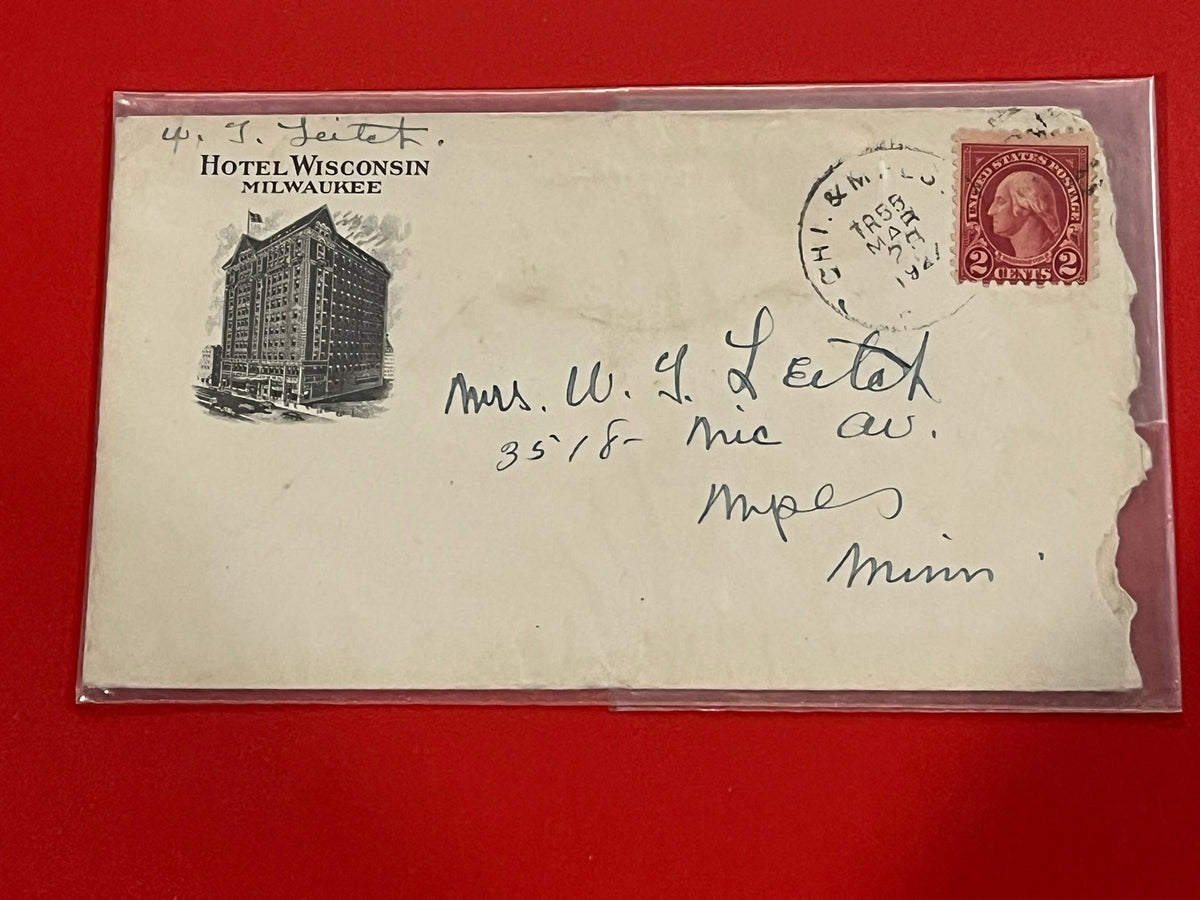 W. G. Leitch.
HOTEL WISCONSIN
MILWAUKEE
CHI. & MPLS.
TR55
MAR
UNITED STATES POSTAGE
2 CENTS 2
Mrs. W. G. Leitch
3518- Nic av.
Mpls
Minn